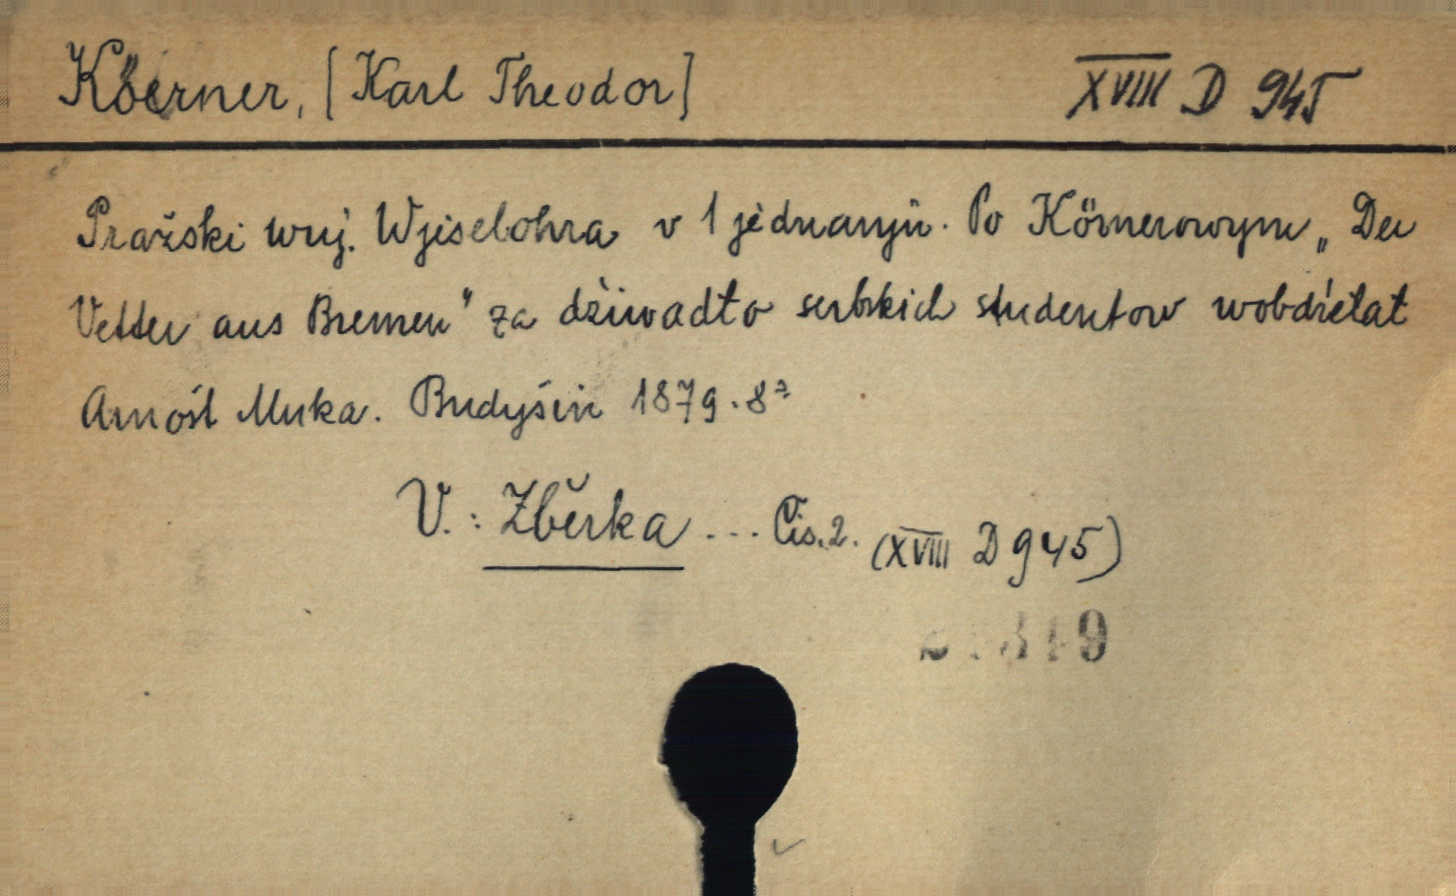 Köerner, [Karl Theodor] XVIII D 945
Pražski wuj. Wjiselohra v 1 jědnanju. Po Körnerowym „Der
Vetter aus Bremen" za dźiwadło serbskich studentow wobdźěłał
Arnošt Muka. Budyšin 1879. 8°
V.: Zběrka ... Čis. 2. (XVIII D 945)